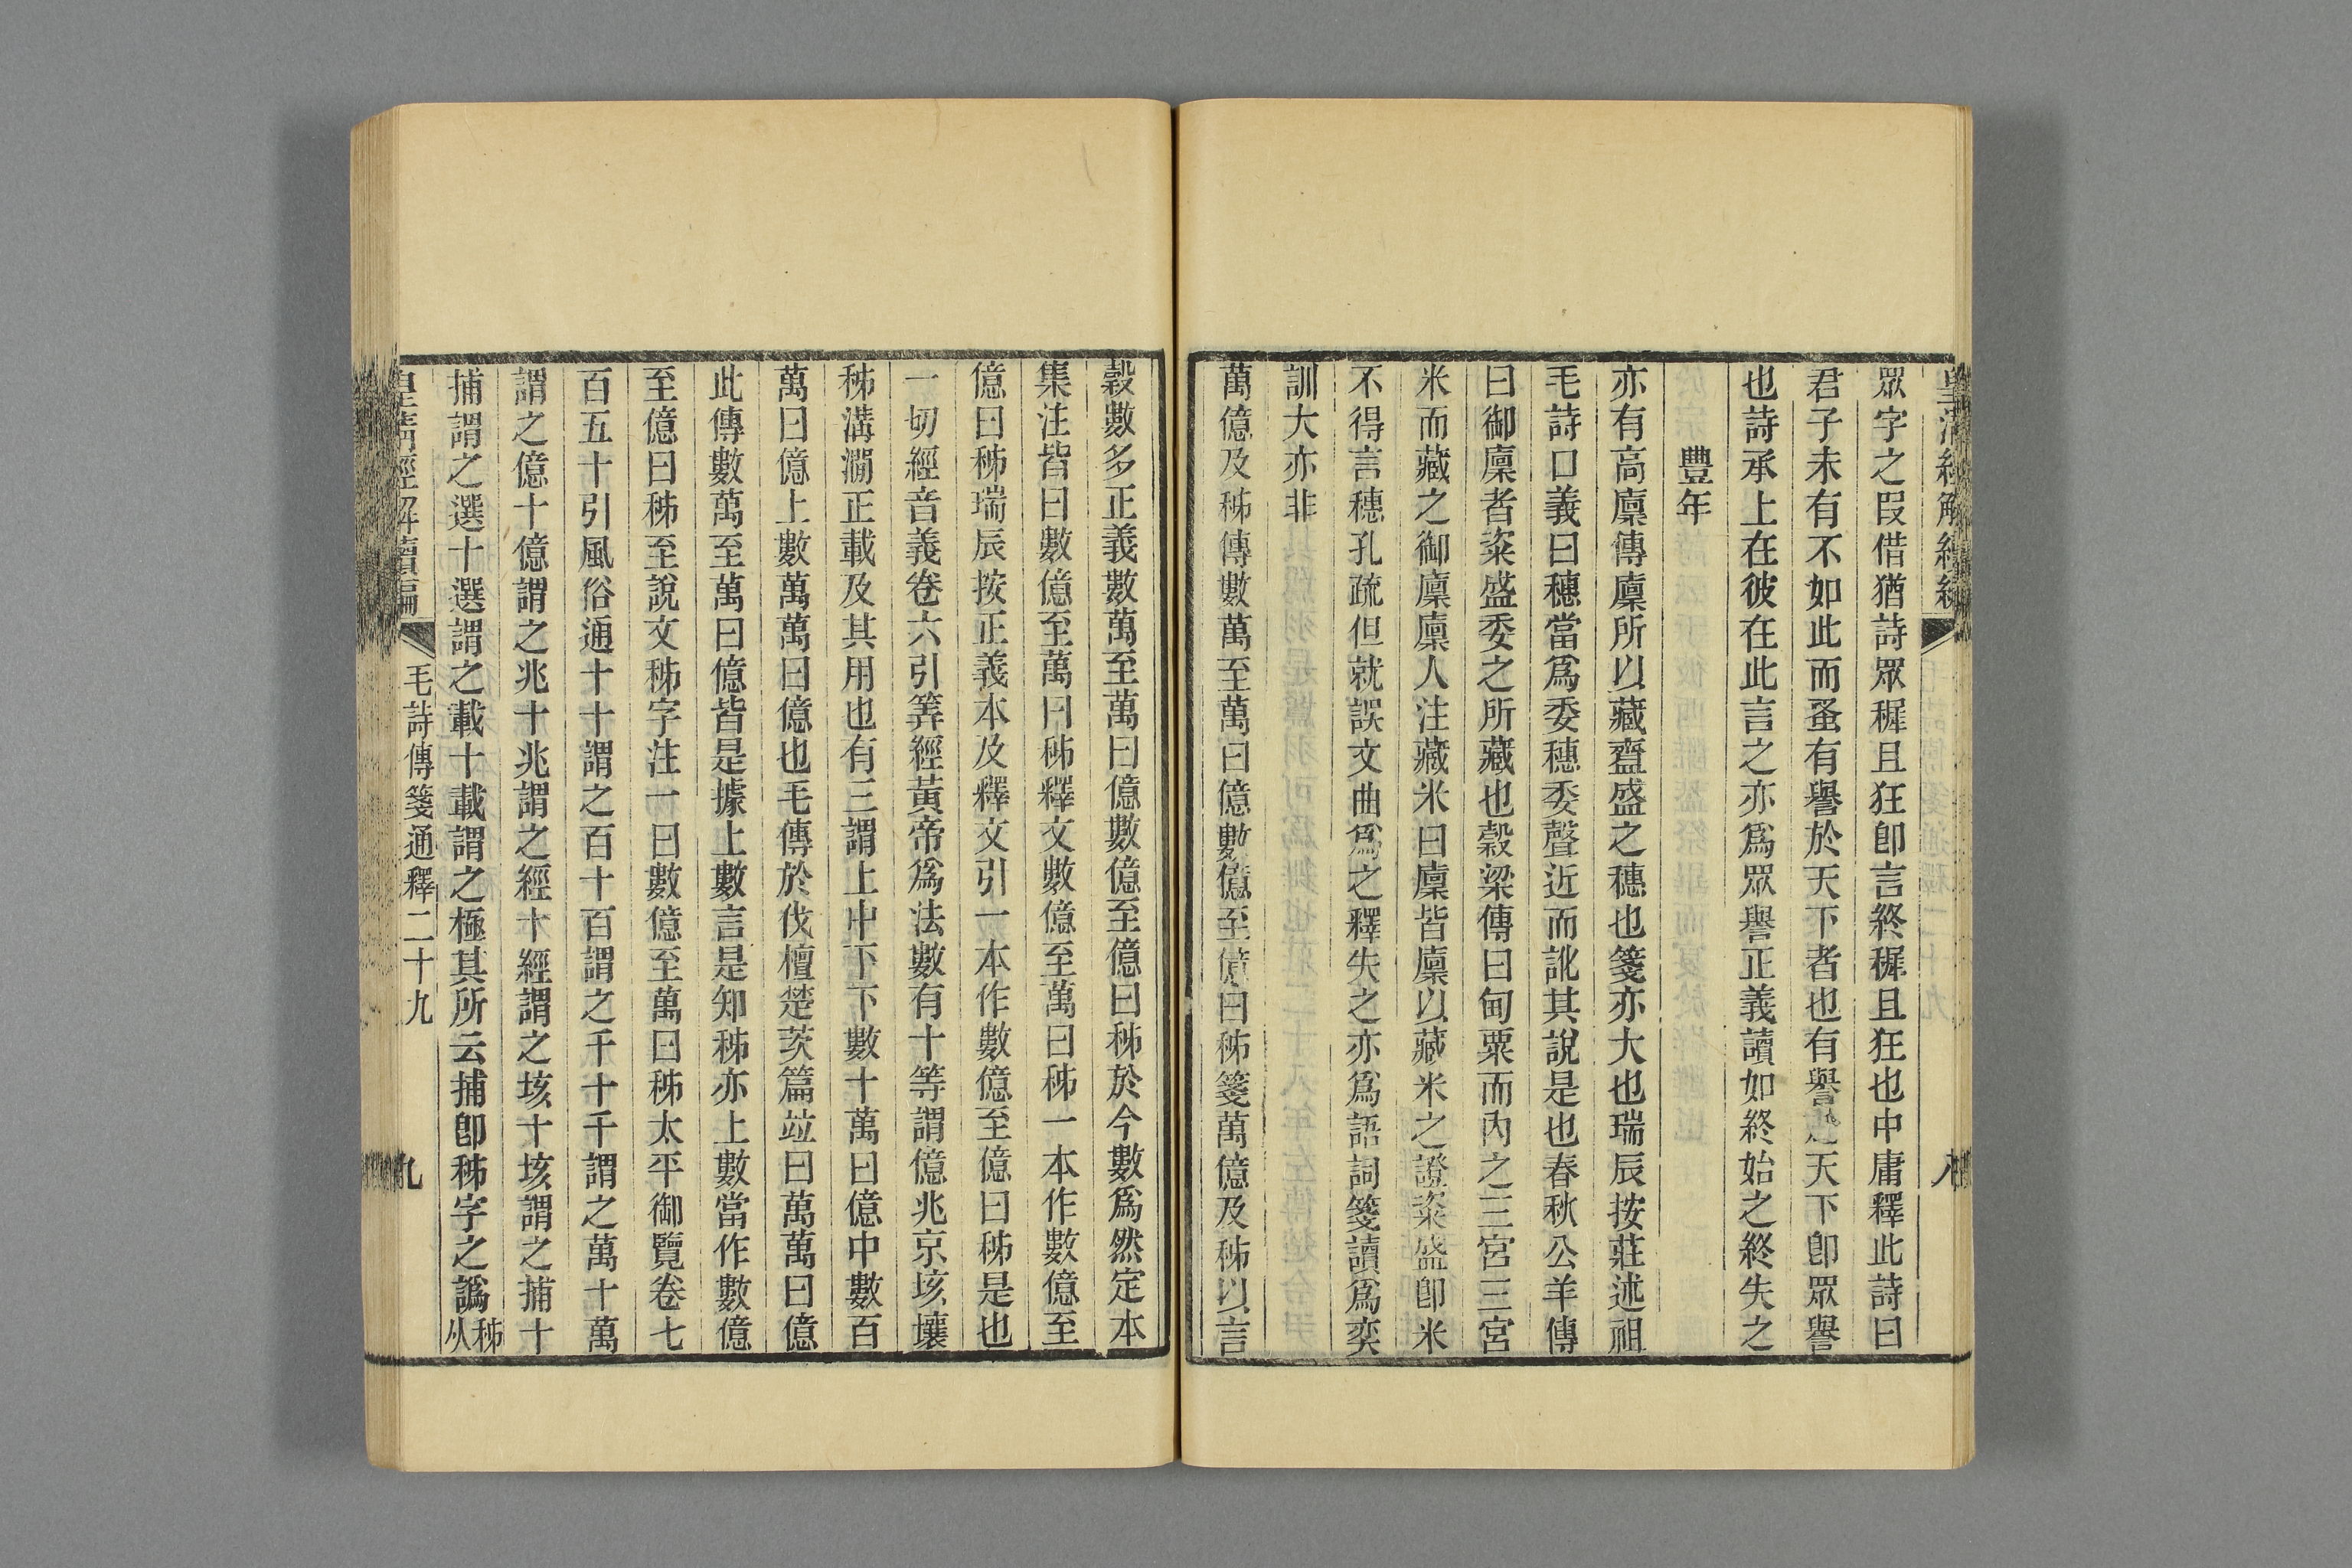 眾字之叚借猶詩眾穉且狂卽言終穉且狂也中庸釋此詩曰
君子未有不如此而蚤有譽於天下者也有譽天下卽眾譽
也詩承上在彼在此言之亦爲眾譽正義讀如終始之終失之
豐年
亦有高廩傳廩所以藏齍盛之穗也箋亦大也瑞辰按莊述祖
毛詩口義曰穗當爲委穗委聲近而訛其說是也春秋公羊傳
曰御廩者粢盛委之所藏也穀梁傳曰甸粟而內之三宮三宮
米而藏之御廩廩人注藏米曰廩皆廩以藏米之證粢盛卽米
不得言穗孔疏但就誤文曲爲之釋失之亦爲語詞箋讀爲奕
訓大亦非
萬億及秭傳數萬至萬曰億數億至億曰秭箋萬億及秭以言
穀數多正義數萬至萬曰億數億至億曰秭於今數爲然定本
集注皆曰數億至萬曰秭釋文數億至萬曰秭一本作數億至
億曰秭瑞辰按正義本及釋文引一本作數億至億曰秭是也
一切經音義卷六引筭經黃帝爲法數有十等謂億兆京垓壤
秭溝澗正載及其用也有三謂上中下下數十萬曰億中數百
萬曰億上數萬萬曰億也毛傳於伐檀楚茨篇竝曰萬萬曰億
此傳數萬至萬曰億皆是據上數言是知秭亦上數當作數億
至億曰秭至說文秭字注一曰數億至萬曰秭太平御覽卷七
百五十引風俗通十十謂之百十百謂之千十千謂之萬十萬
謂之億十億謂之兆十兆謂之經十經謂之垓十垓謂之捕十
捕謂之選十選謂之載十載謂之極其所云捕卽秭字之譌秭从
皇清經解續編 毛詩傳箋通釋二十九 九